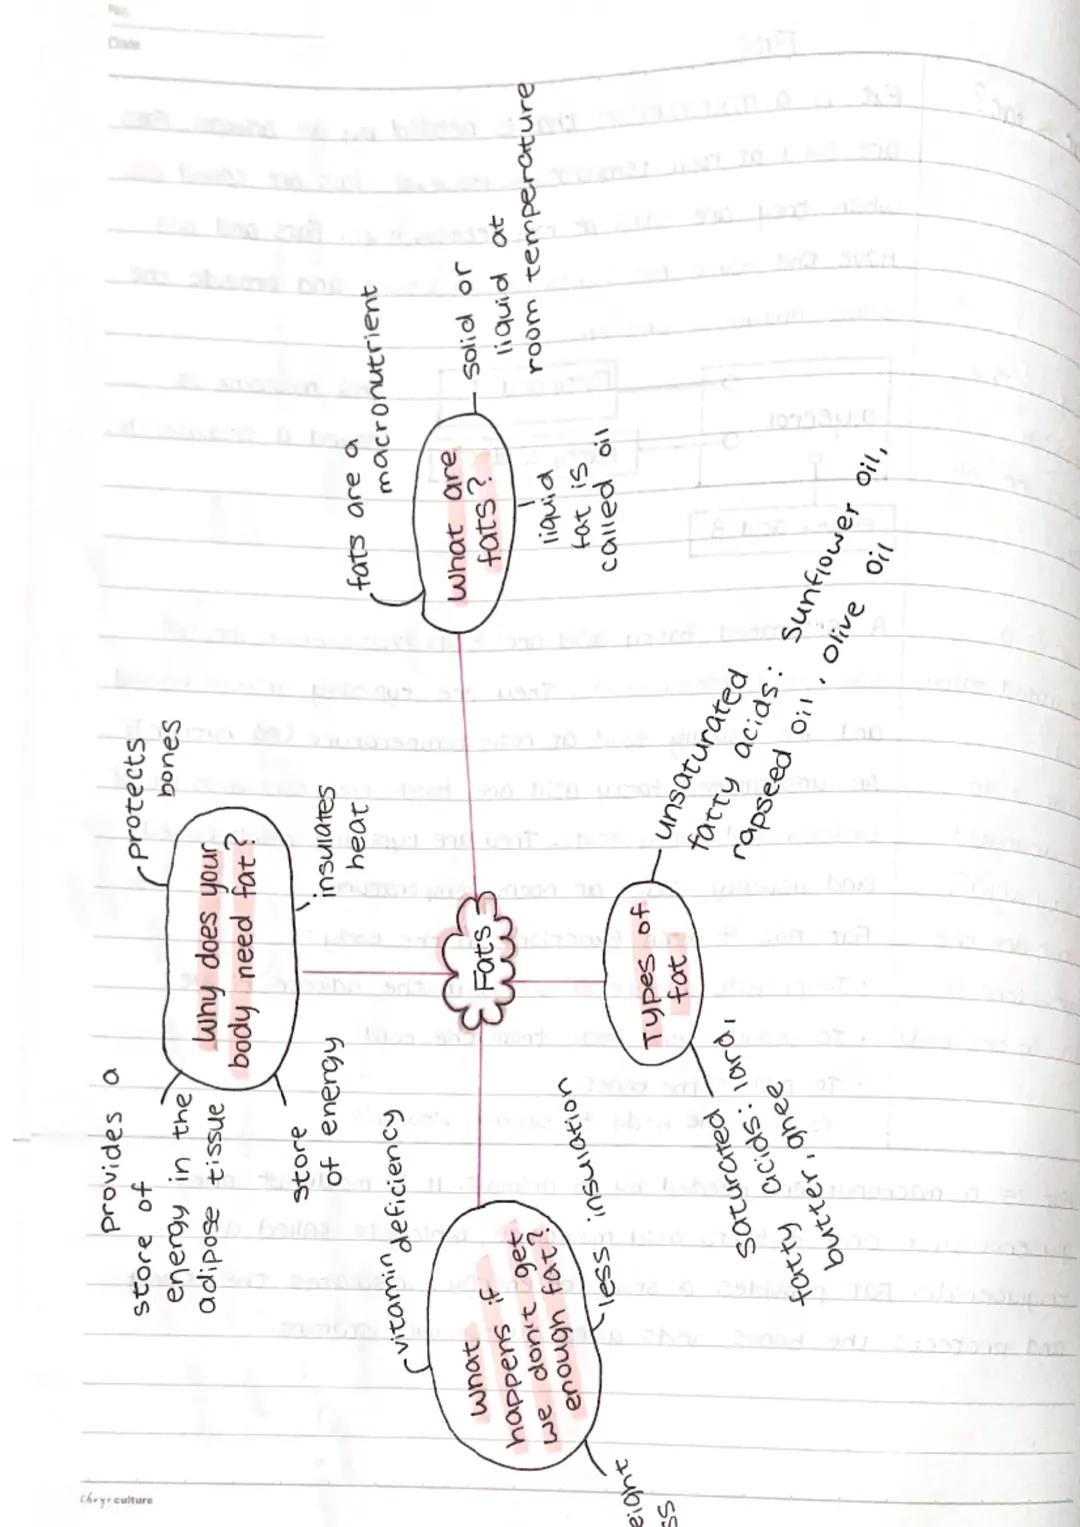 No.
Date
Fats
What are
fats?
fats are a
macronutrient
solid or
liquid at
room temperature
liquid
fat is
called oil
Why does your
body need fat?
protects
bones
insulates
heat
store
of energy
provides a
store of
energy in the
adipose tissue
Types of
fat
unsaturated
fatty acids: sunflower oil,
rapseed oil, olive oil
saturated
fatty acids: lard,
butter, ghee
What
happens if
we don't get
enough fat?
vitamin deficiency
less insulation
culture